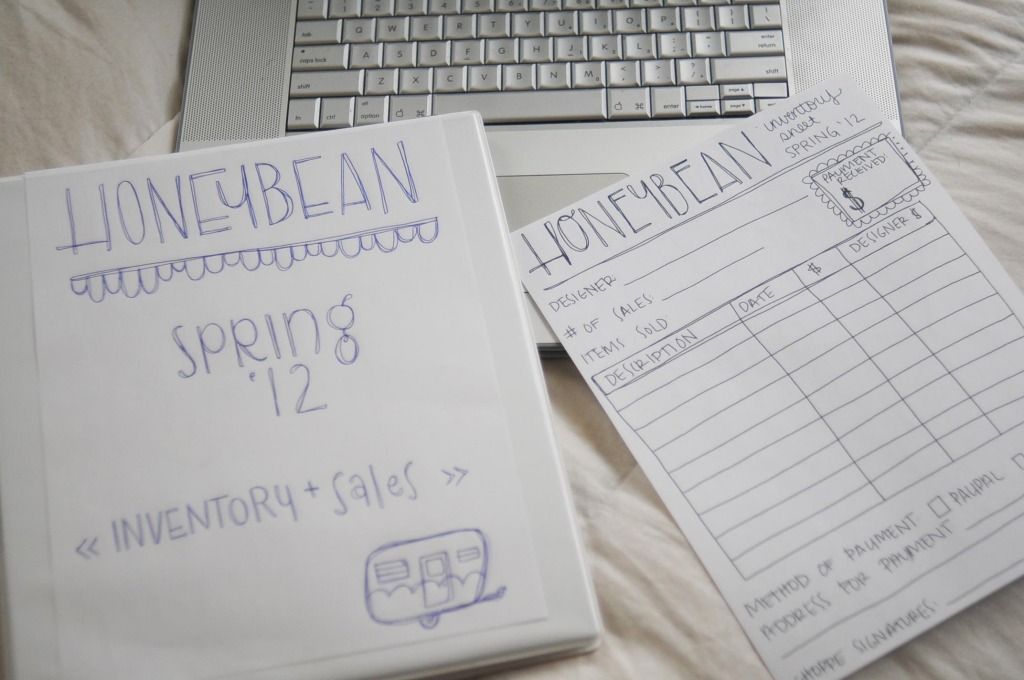 HONEYBEAN
SPRING
'12
« INVENTORY + SALES »
HONEYBEAN
inventory
sheet
SPRING '12
PAYMENT
RECEIVED:
$
DESIGNER:
# OF SALES:
ITEMS SOLD:
DESCRIPTION DATE $ DESIGNER $
METHOD OF PAYMENT □ PAYPAL
ADDRESS FOR PAYMENT
SHOPPE SIGNATURES:
tab Q W E R T Y U I O P { [ } ] | \
caps lock A S D F G H J K L : ; " ' enter return
shift Z X C V B N M < , > . ? / shift
fn ctrl alt option ⌘ ⌘ enter home page page end